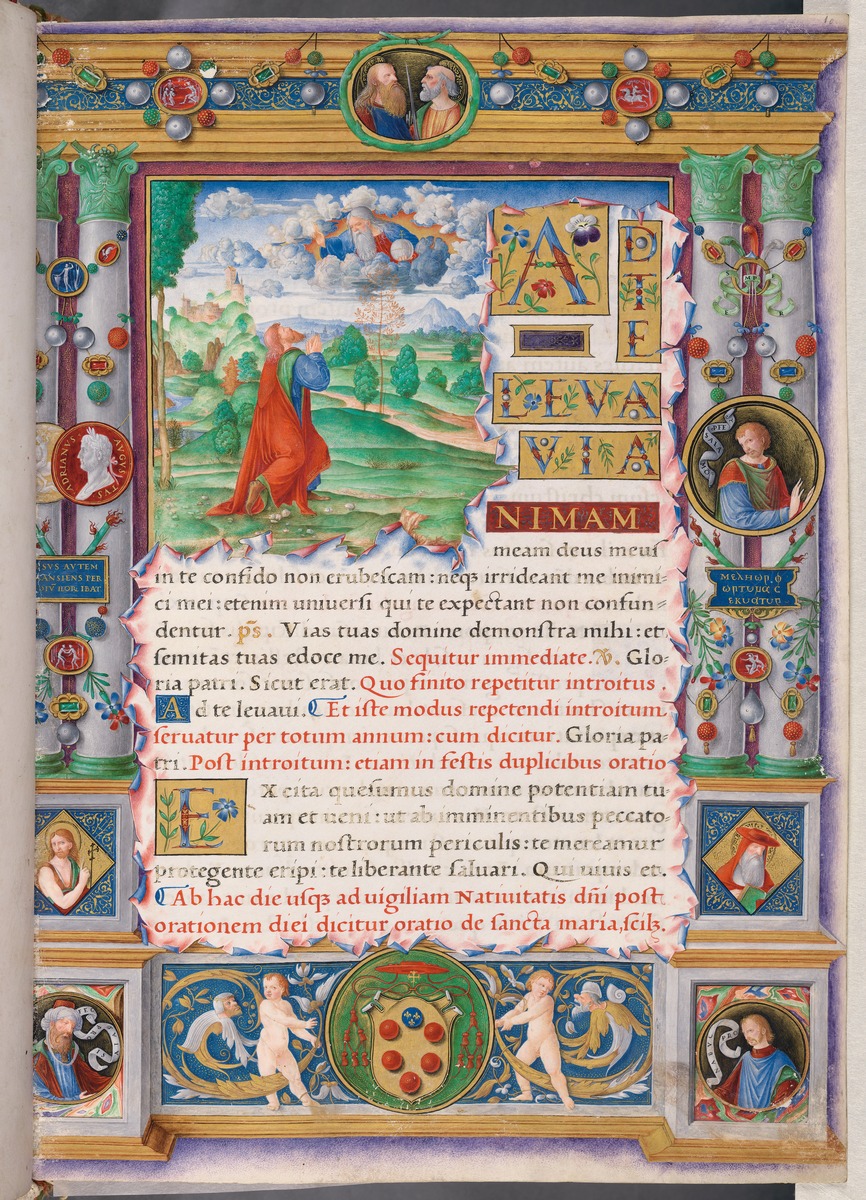 A
D TE
LEVA
VI A
NIMAM
meam deus meuſ
in te confido non erubeſcam: neqꝫ irrideant me inimi-
ci mei: etenim univerſi qui te expectant non confun-
dentur. p̄s. Vias tuas domine demonſtra mihi: et
ſemitas tuas edoce me. Sequitur immediate. ℣. Glo-
ria patri. Sicut erat. Quo finito repetitur introitus.
Ad te levavi. ¶ Et iſte modus repetendi introitum
ſervatur per totum annum: cum dicitur. Gloria pa-
tri. Post introitum: etiam in feſtis duplicibus oratio
EXcita queſumus domine potentiam tu-
am et veni: ut ab imminentibus peccato-
rum noſtrorum periculis: te mereamur
protegente eripi: te liberante ſalvari. Qui vivis et.
¶ Ab hac die uſqꝫ ad vigiliam Nativitatis dn̄i post
orationem diei dicitur oratio de ſancta maria, ſcilꝫ.
ADRIANVS AVGVSTVS
SVS AVTEM
ANSIENS PER
DIV̄ HOR IBAT